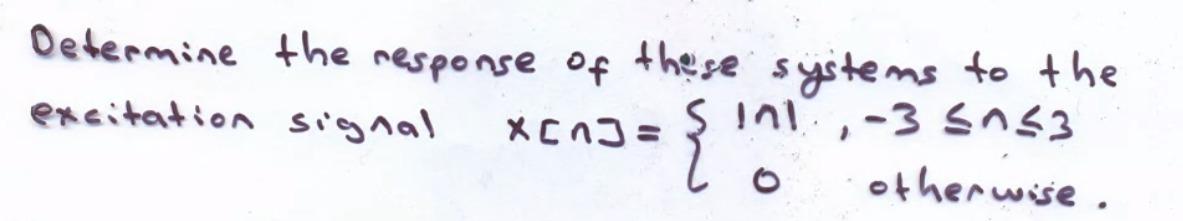 Determine the response of these systems to the
excitation signal x[n] = { |n| , -3 ≤ n ≤ 3
0 otherwise.